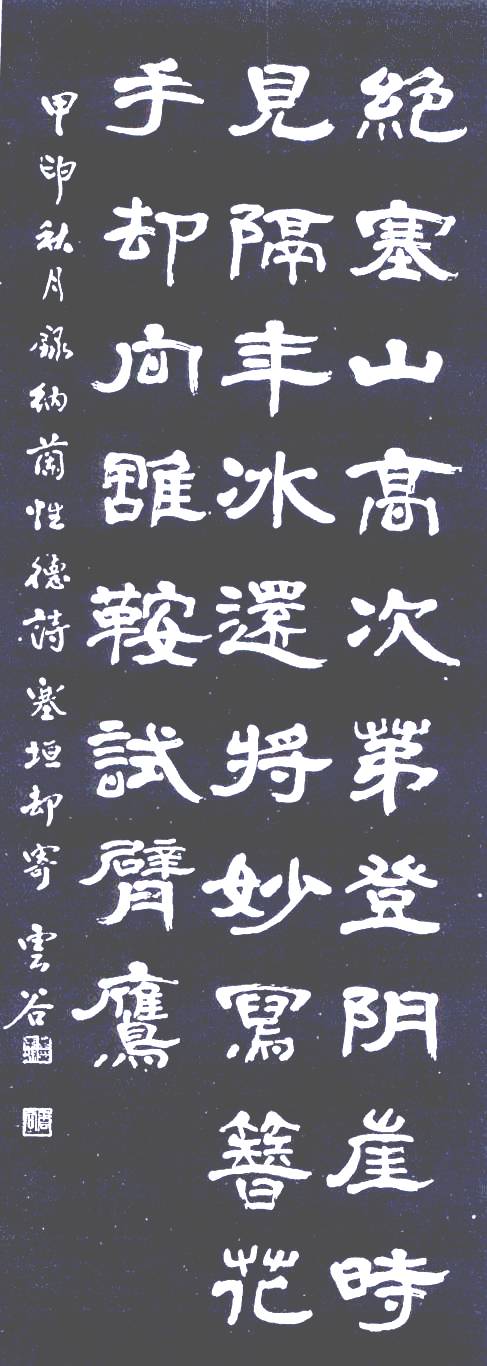 絕塞山高次第登阴崖時
見隔年冰還將妙寫簪花
手却向雕鞍試臂鷹
甲申秋月錄納蘭性德詩塞垣却寄 雲谷